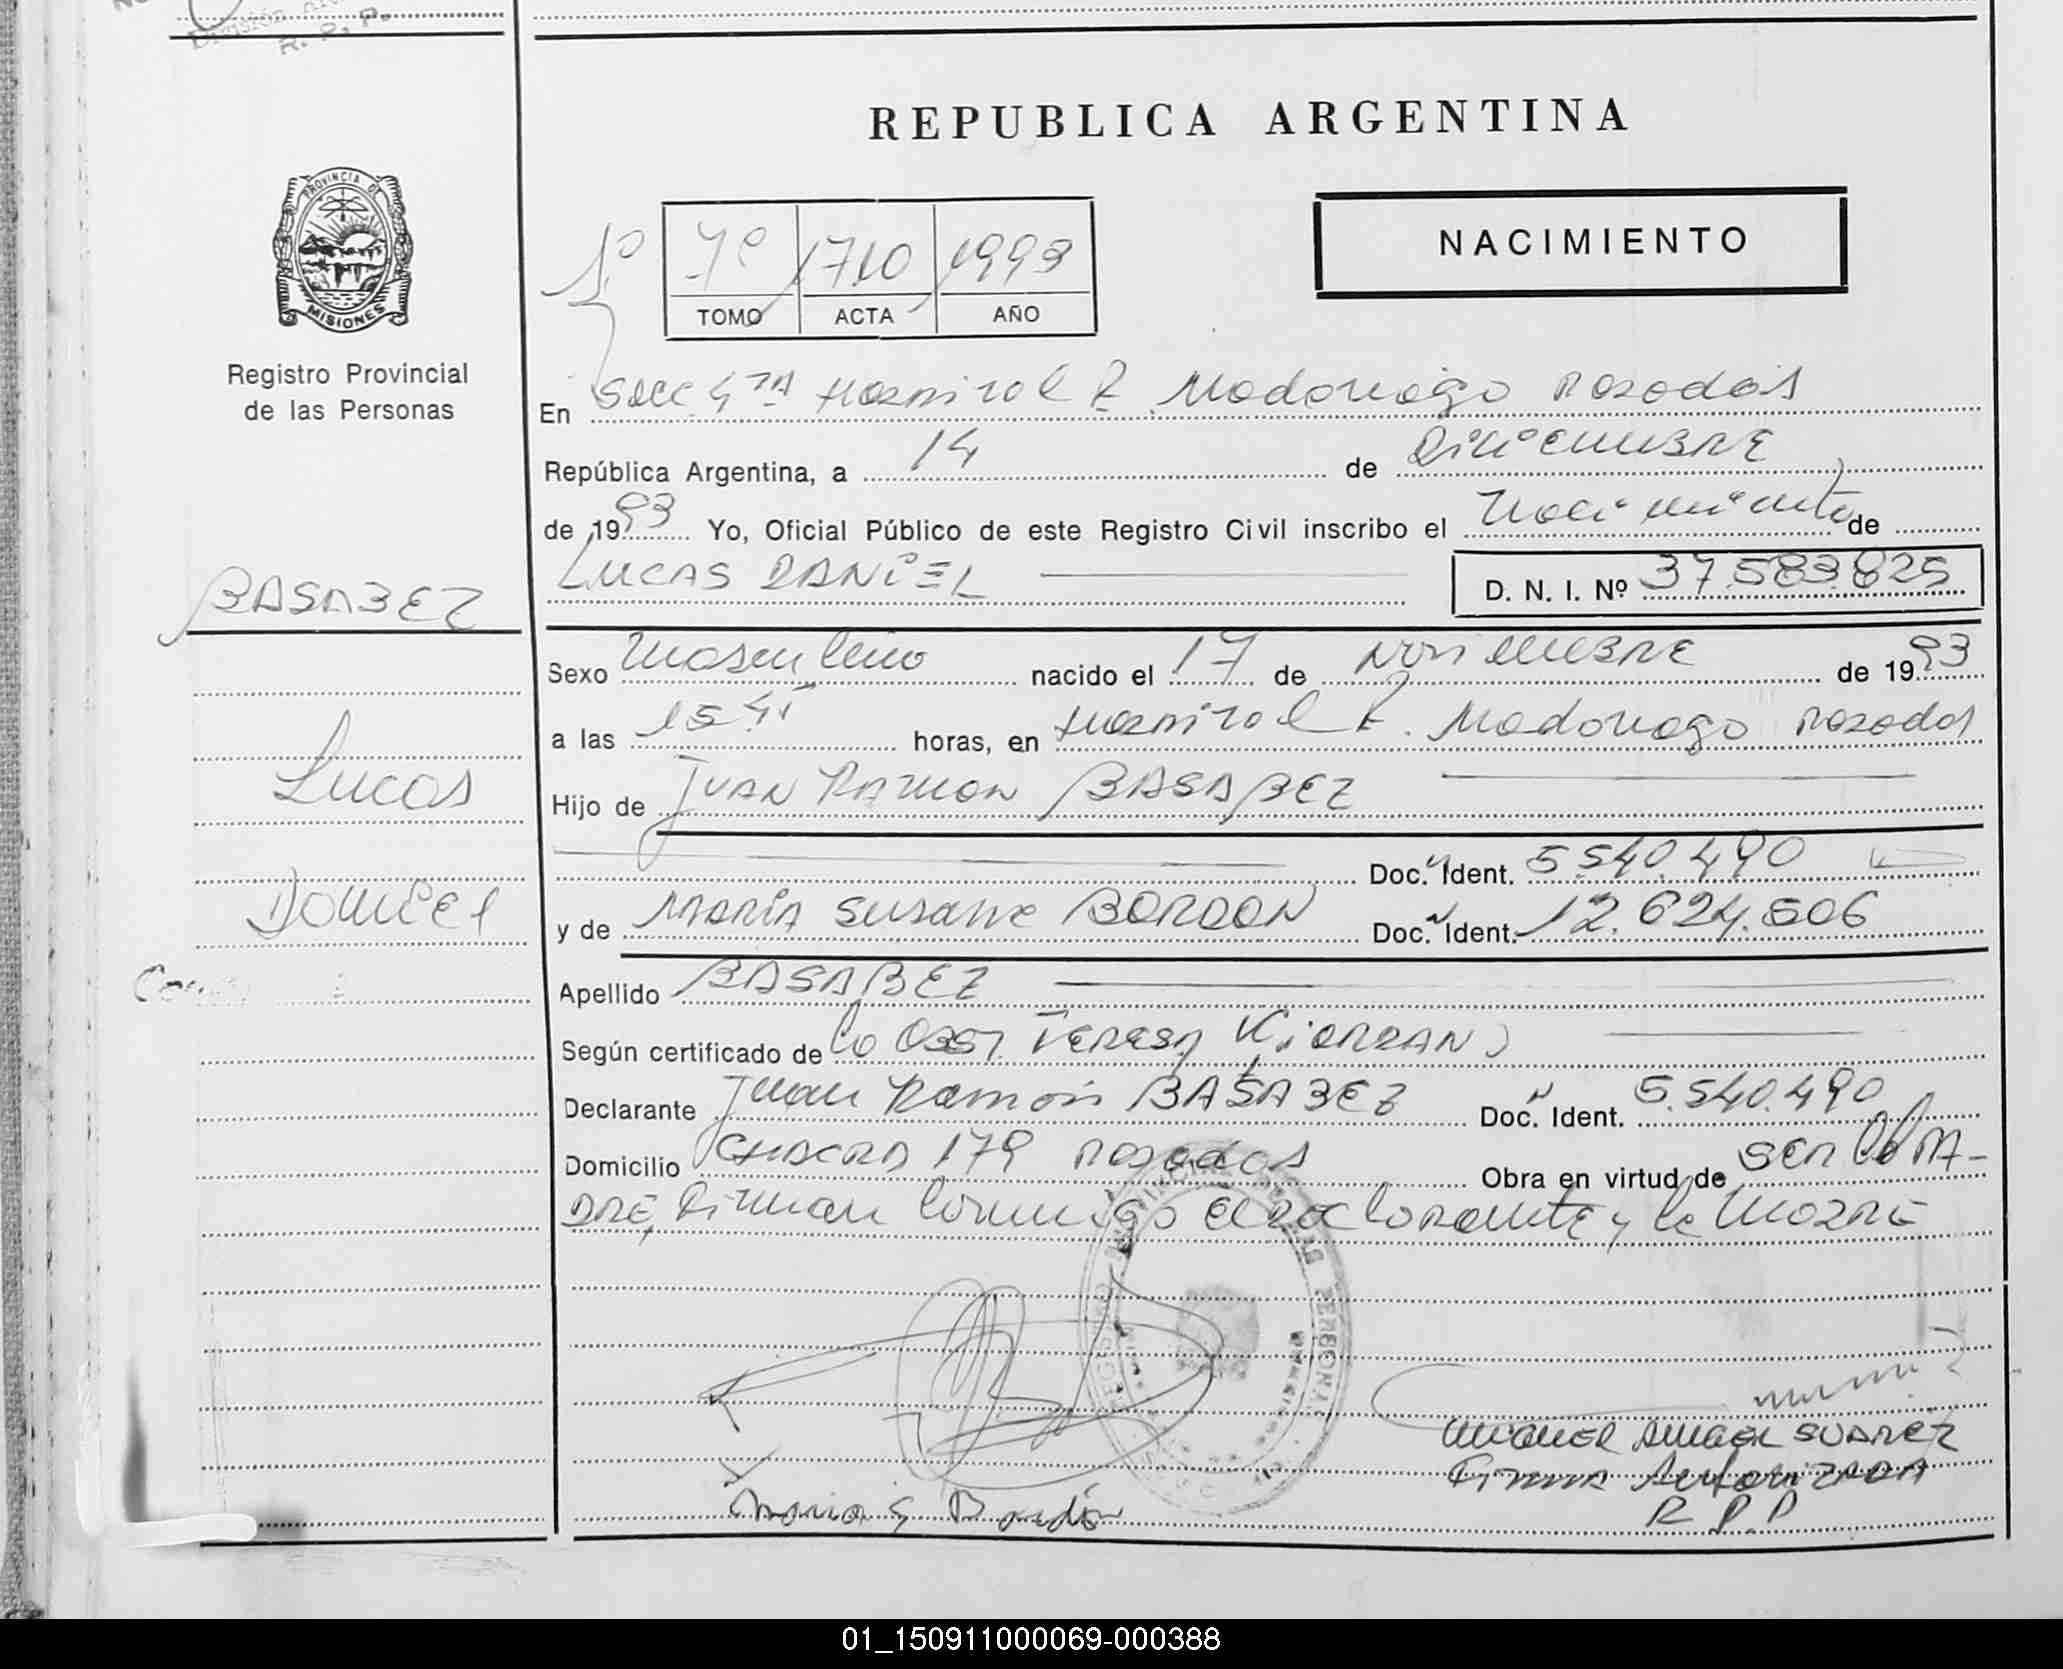 R. P. P.
REPUBLICA ARGENTINA
PROVINCIA DE
MISIONES
Registro Provincial
de las Personas
7º 1710 1993
TOMO ACTA AÑO
NACIMIENTO
En Secc 4TA Hospital R. Madariaga Posadas
República Argentina, a 14 de Diciembre
de 1993 Yo, Oficial Público de este Registro Civil inscribo el Nacimiento de
LUCAS DANIEL D. N. I. Nº 37.583.825
BASABEZ
Sexo Masculino nacido el 17 de Noviembre de 1993
a las 15 41 horas, en Hospital R. Madariaga Posadas
Lucas
Hijo de JUAN RAMON BASABEZ
Doc. Ident. 5.540.490
Daniel
y de MARIA Susana BORDON Doc. Ident. 12.624.606
Apellido BASABEZ
Según certificado de la Obst TERESA
Declarante Juan Ramon BASABEZ Doc. Ident. 5.540.490
Domicilio CHACRA 179 Posadas Obra en virtud de ser el PA-
DRE, Firman conmigo el Declarante y la Madre
Maria S Bordón
MIGUEL ANGEL SUAREZ
Firma Autorizada
R P.P
01_150911000069-000388